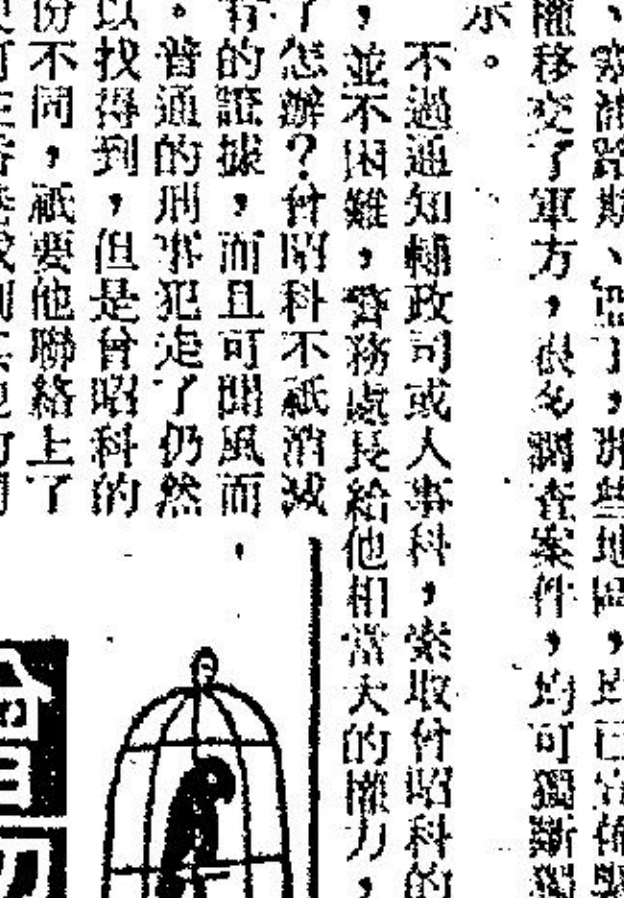 、塞浦路斯、
，那些地區，均已
權移交了軍方，很多調查案件，均可獨斷獨
示。
不過通知輔政司或人事科，索取曾昭科的
，並不困難，警務處長給他相當大的權力，
了怎辦？曾昭科不祇消滅
有的證據，而且可聞風而
。普通的刑事犯走了仍然
以找得到，但是曾昭科的
份不同，祇要他聯絡上了
曾